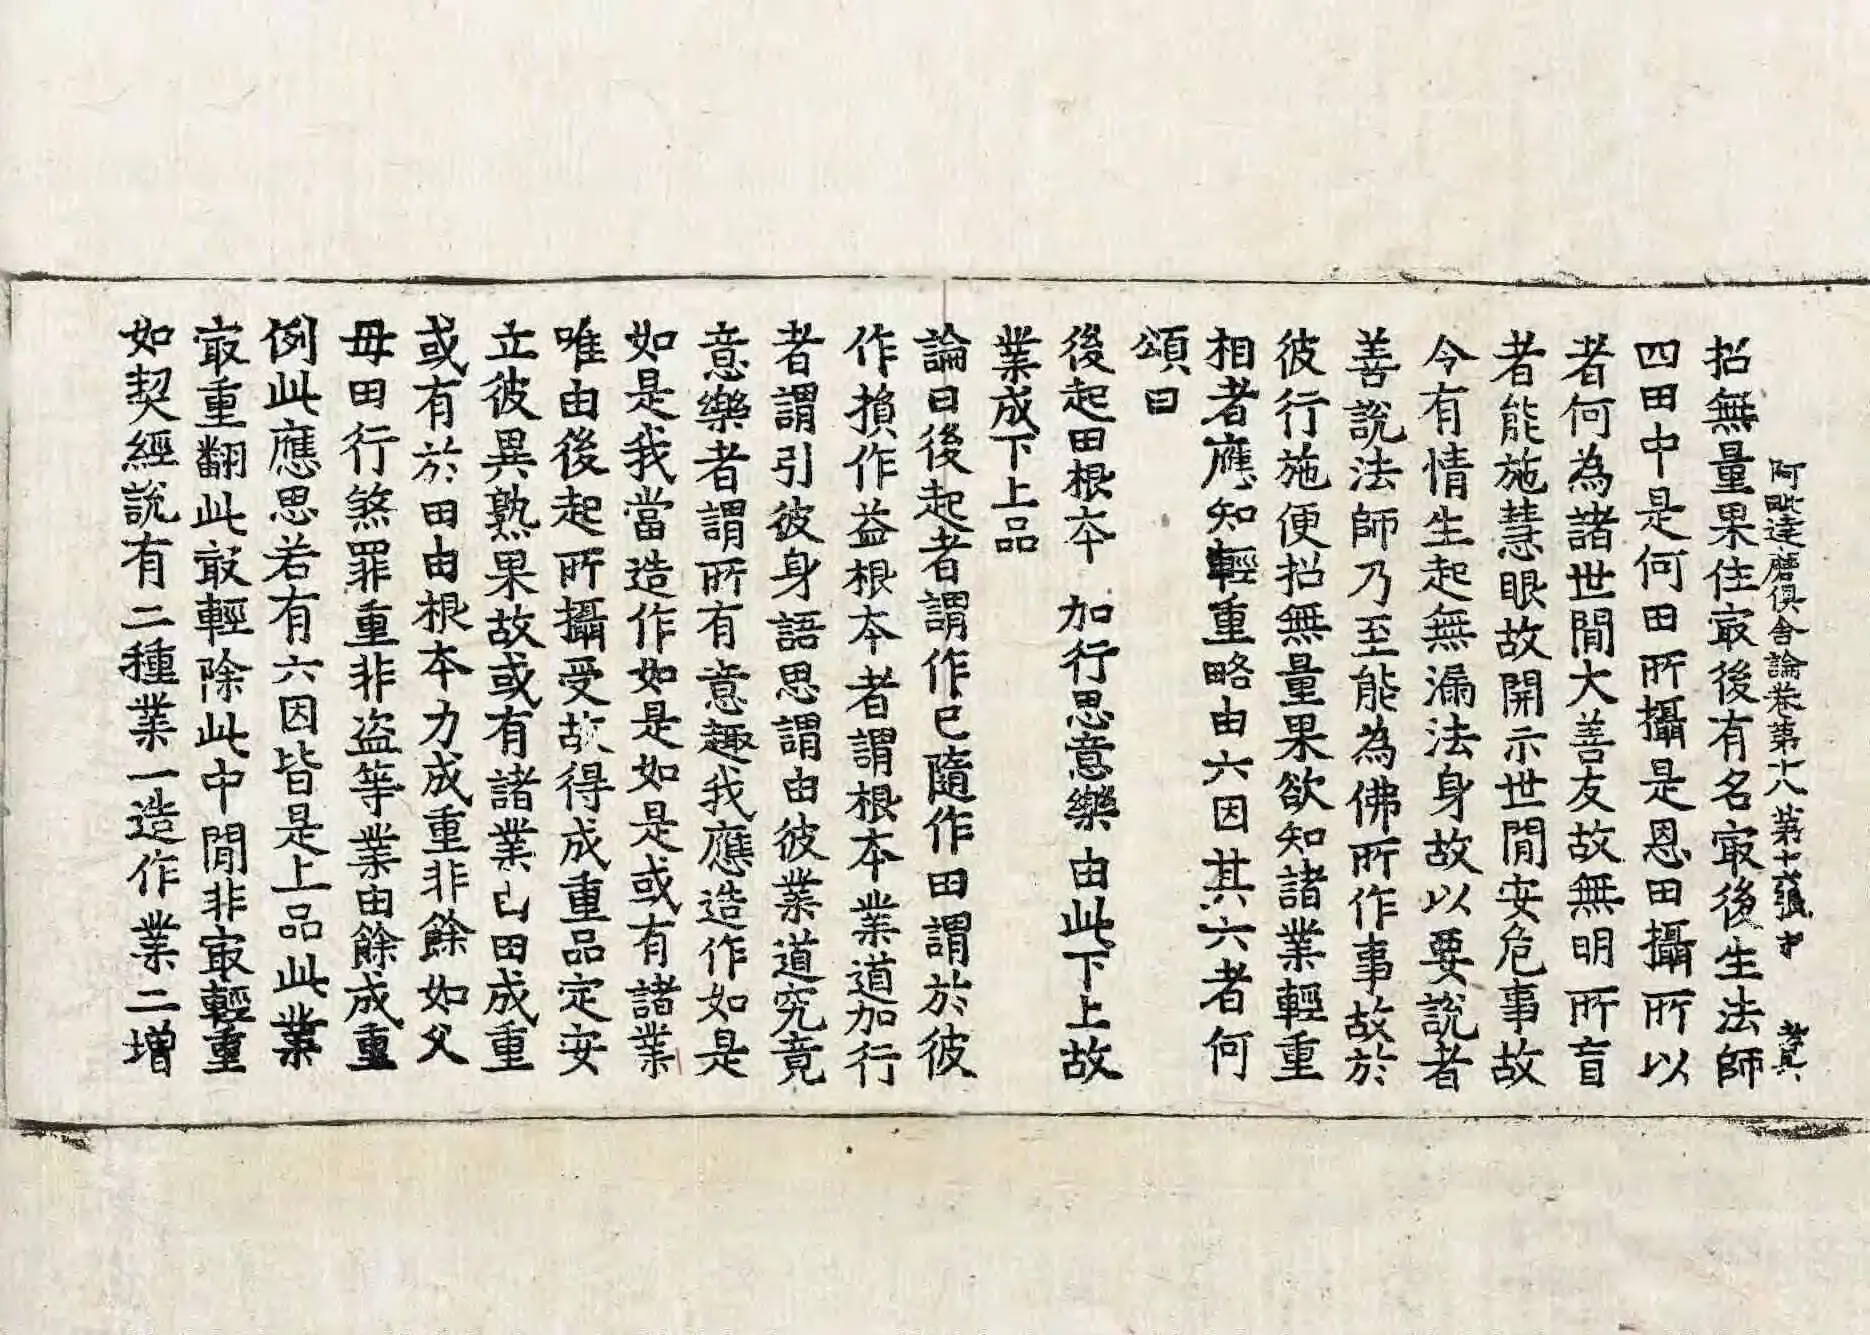 阿毗達磨俱舍論卷第十八 第十張 才 孝兵
招無量果住㝡後有名㝡後生法師
四田中是何田所攝是恩田攝所以
者何為諸世閒大善友故無明所盲
者能施慧眼故開示世閒安危事故
令有情生起無漏法身故以要說者
善說法師乃至能為佛所作事故於
彼行施便招無量果欲知諸業輕重
相者應知輕重略由六因其六者何
頌曰
後起田根本 加行思意樂 由此下上故
業成下上品
論曰後起者謂作已隨作田謂於彼
作損作益根本者謂根本業道加行
者謂引彼身語思謂由彼業道究竟
意樂者謂所有意趣我應造作如是
如是我當造作如是如是或有諸業
唯由後起所攝受故得成重品定安
立彼異熟果故或有諸業由田成重
或有於田由根本力成重非餘如父
母田行煞罪重非盜等業由餘成重
例此應思若有六因皆是上品此業
㝡重翻此㝡輕除此中閒非㝡輕重
如契經說有二種業一造作業二增